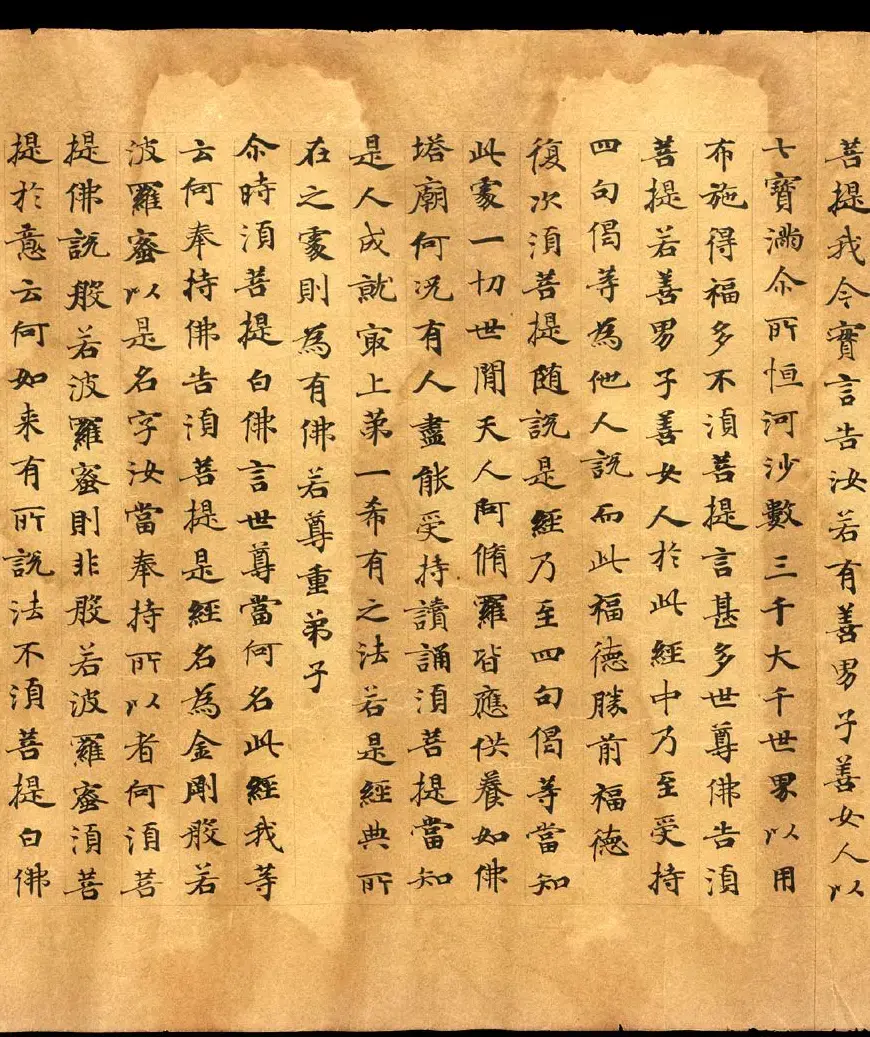 菩提我今實言告汝若有善男子善女人以
七寶滿尒所恒河沙數三千大千世界以用
布施得福多不須菩提言甚多世尊佛告須
菩提若善男子善女人於此經中乃至受持
四句偈等為他人說而此福德勝前福德
復次須菩提随說是經乃至四句偈等當知
此處一切世間天人阿脩羅皆應供養如佛
塔廟何況有人盡能受持讀誦須菩提當知
是人成就㝡上第一希有之法若是經典所
在之處則為有佛若尊重弟子
尒時須菩提白佛言世尊當何名此經我等
云何奉持佛告須菩提是經名為金剛般若
波羅蜜以是名字汝當奉持所以者何須菩
提佛說般若波羅蜜則非般若波羅蜜須菩
提於意云何如来有所說法不須菩提白佛